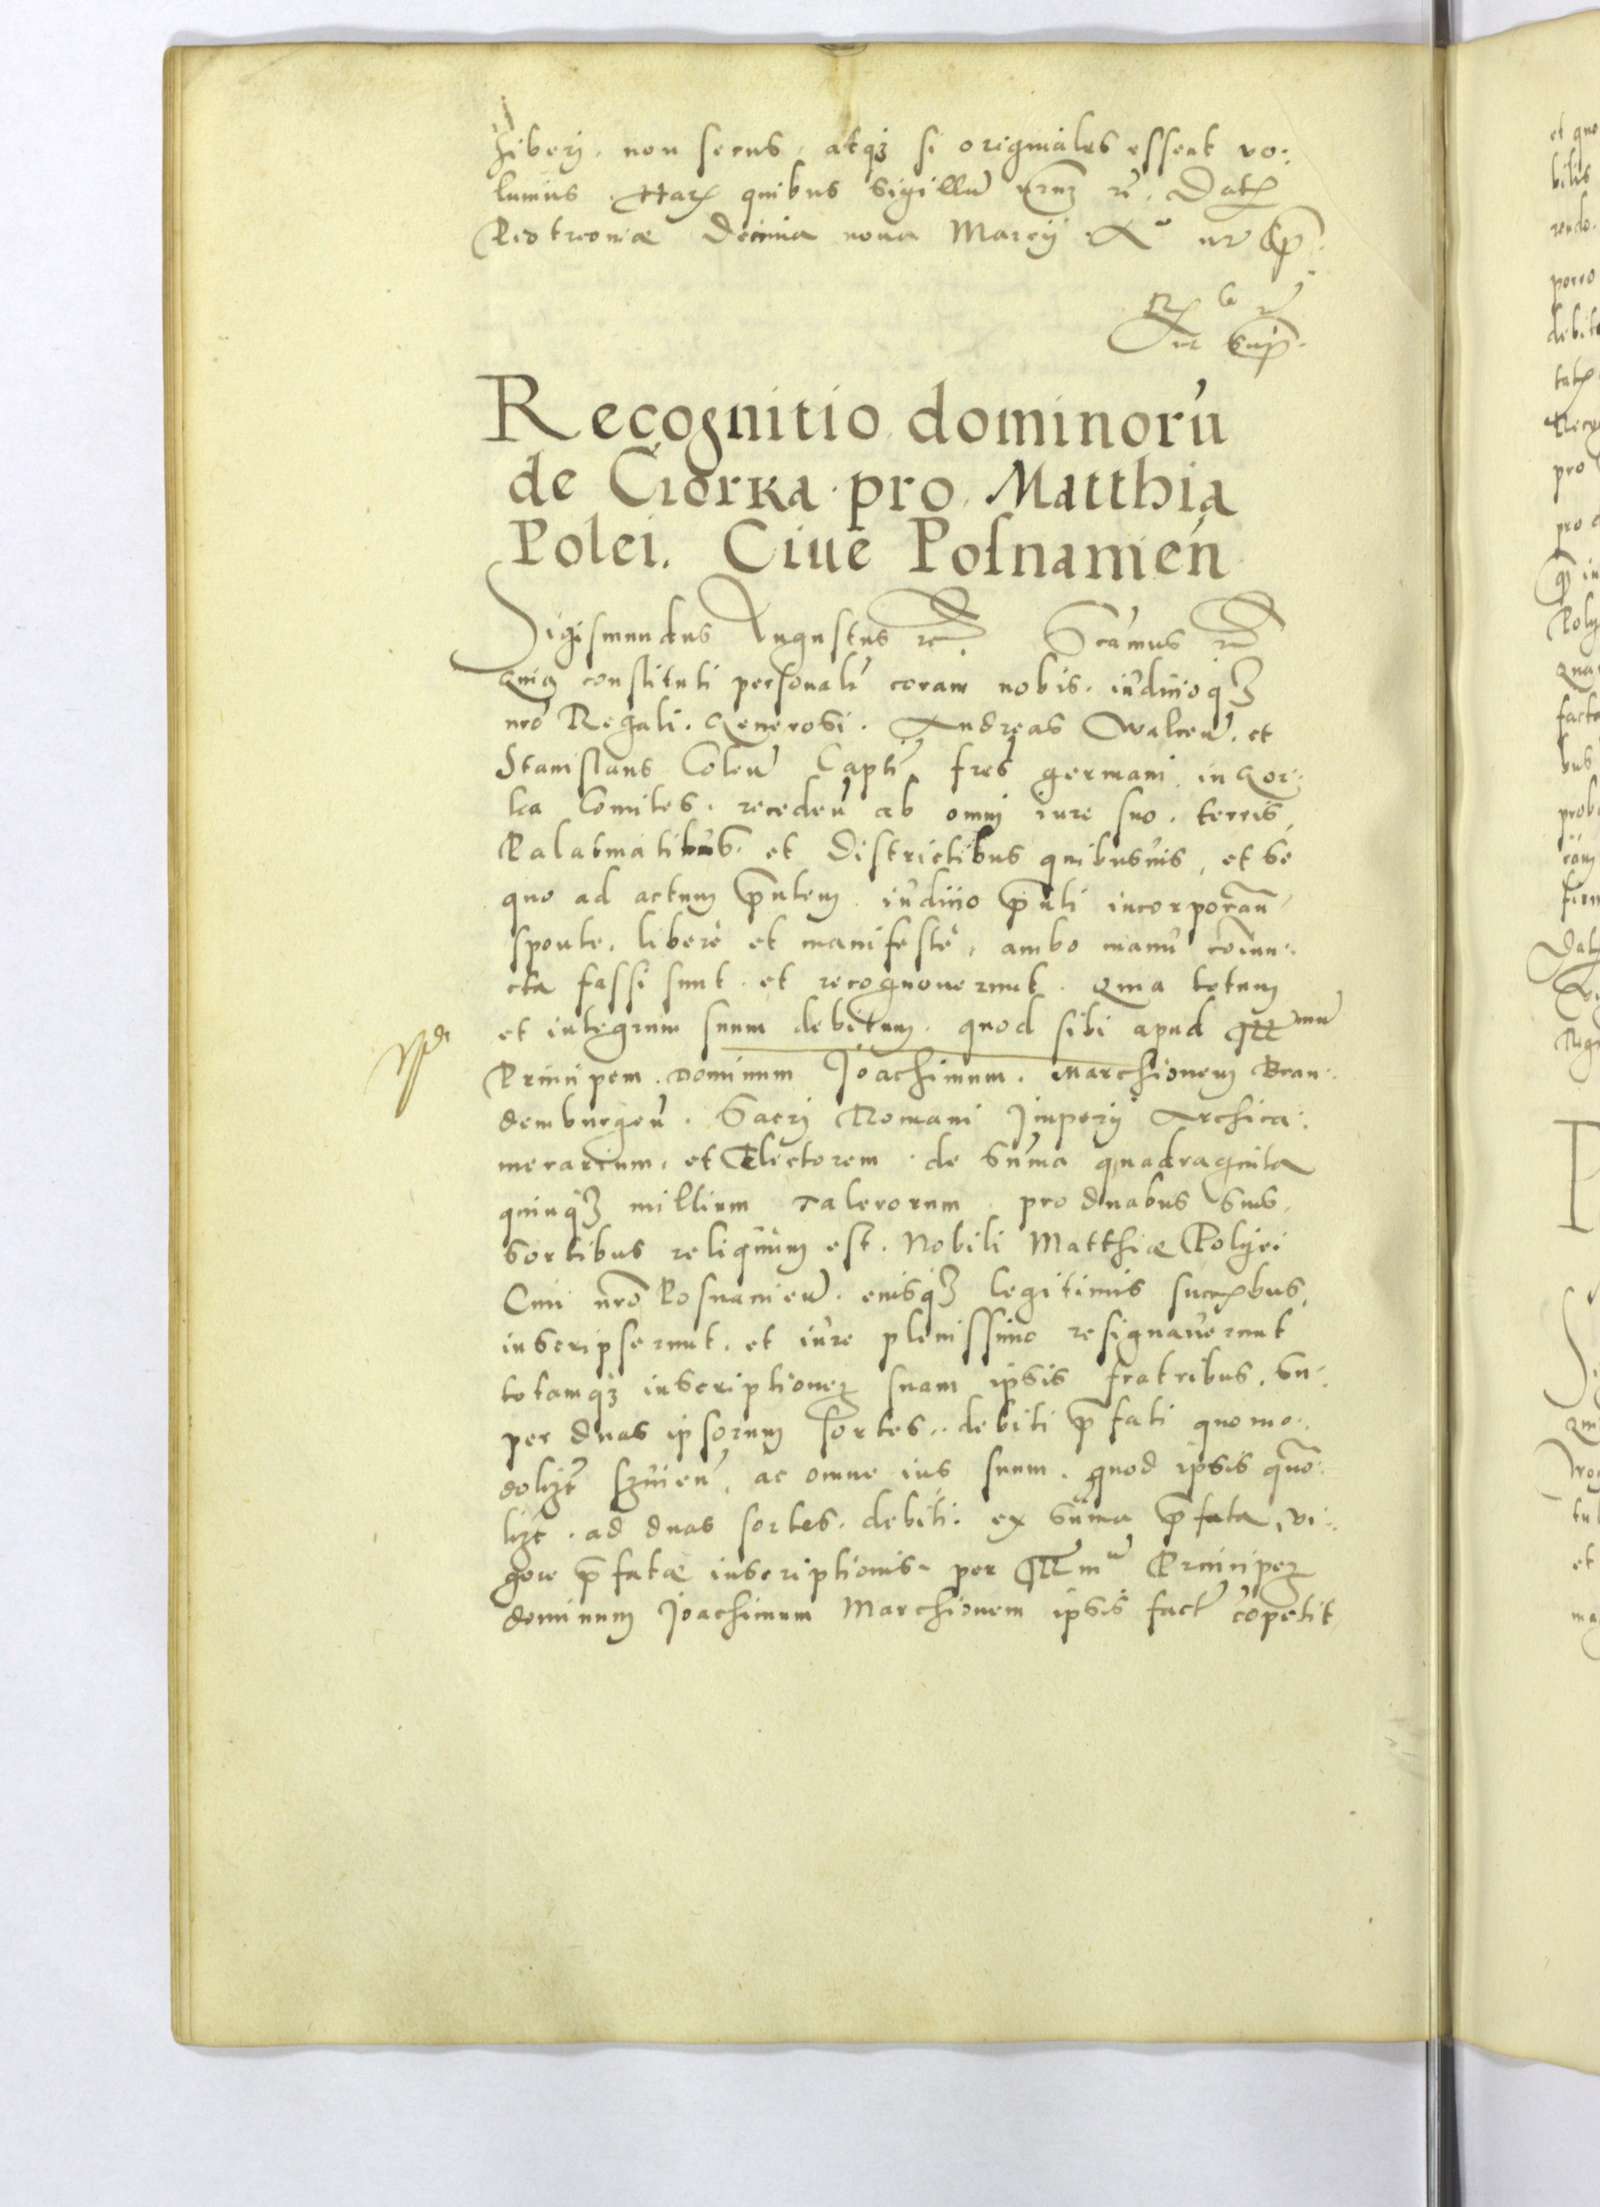 hiberi, non secus, atq3 si originales essent vo-
lumus. Har quibus Sigillū nrm̄ rc̄. Dat
Piotrcoviæ Decima nona Marcij. Aº ut Sp̄.
ut Sup̄.
Recognitio dominorū
de Gorka pro Matthia
Polei. Ciue Posnanień
Sigismundus Augustus rc̄. Scāmus rc̄
Quia constituti personalr̄ coram nobis. iudicioq3
nr̄o Regali. Generosi. Andreas Walceń. et
Stanislaus Coleń Capt̄ fres̄ germani in Gor-
ka Comites. recedeń ab omni iure suo. terris,
Palatinatibus. et Districtibus quibusuis, et se
quo ad actum p̄ntem. iudicio p̄nti incorporań
sponte, liberè et manifestè, ambo manu coniun-
cta fassi sunt. et recognouerunt. Quia totum
et integrum suum debitum. quod sibi apud Illmū
Principem. Dominum Joachimum. Marchionem Bran-
demburgeń. Sacri Romani Imperij Archica-
merarium. et Electorem. de Sum̄a quadraginta
quinq3 millium Talerorum. pro duabus suis
sortibus reliquum est. Nobili Matthiæ Polyei
Ciui nr̄o Posnanień. eiusq3 legitimis succbus,
inscripserunt. et iure plenissimo resignauerunt
totamq3 inscriptionem suam ipsis fratribus. su-
per duas ipsorum sortes. debiti p̄fati quomo-
dolizt̄ seruień, ac omne ius suum. quod ipsis quo-
lizt̄. ad duas sortes. debiti. ex Sum̄a p̄fata, vi-
gore p̄fatæ inscriptionis. per Illmū Principem
dominum Joachimum Marchionem ipsis fact̄ copetit